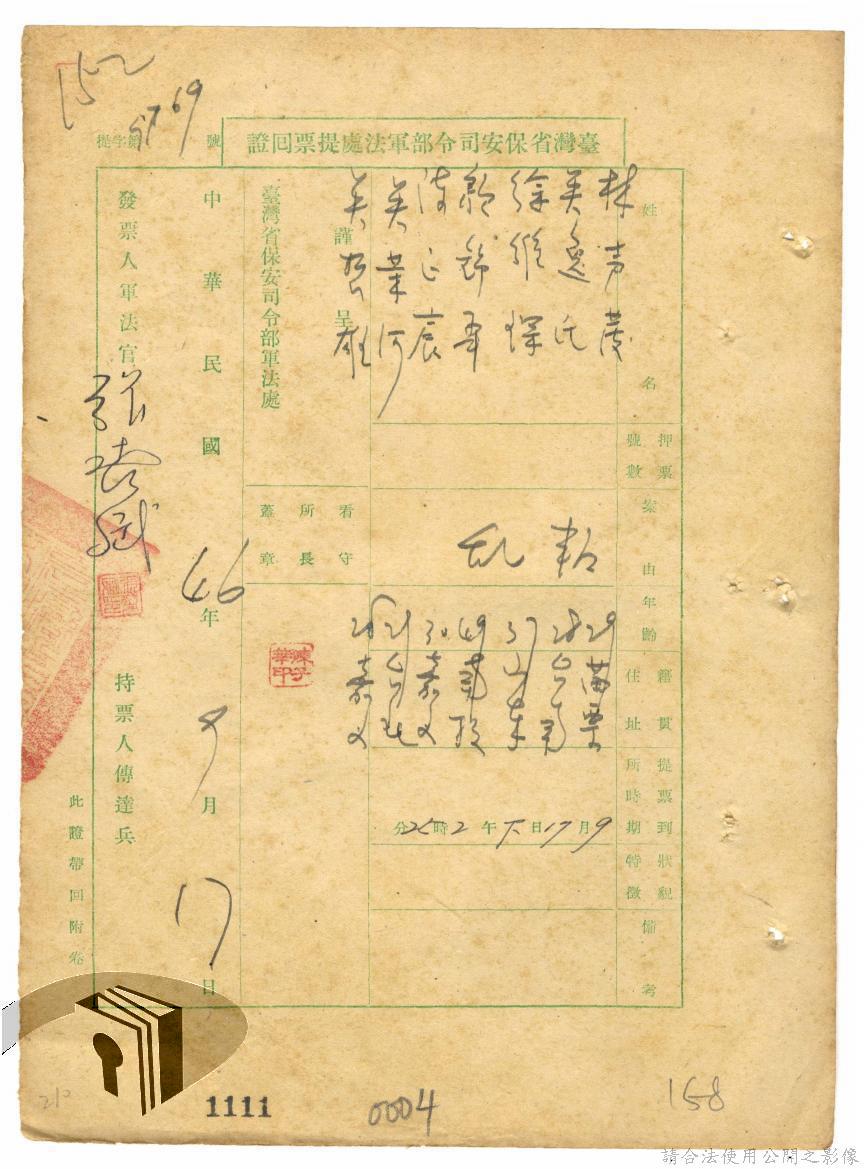 152
臺灣省保安司令部軍法處提票回證
提字第5769號
姓名
林声發
吳逸民
徐維琛
吳業何
吳哲雄
押票號數
案由
叛乱
年齡
籍貫住址
29 苗栗
28 台南
37 山東
49 南投
30 嘉义
21 台北
28 嘉义
提票到所時期
9月17日下午2時25分
狀貌特徵
備考
謹呈
臺灣省保安司令部軍法處
看守所長蓋章
中華民國46年9月17日
發票人軍法官
持票人傳達兵
此證帶回附卷
210
1111
0004
168
請合法使用公開之影像